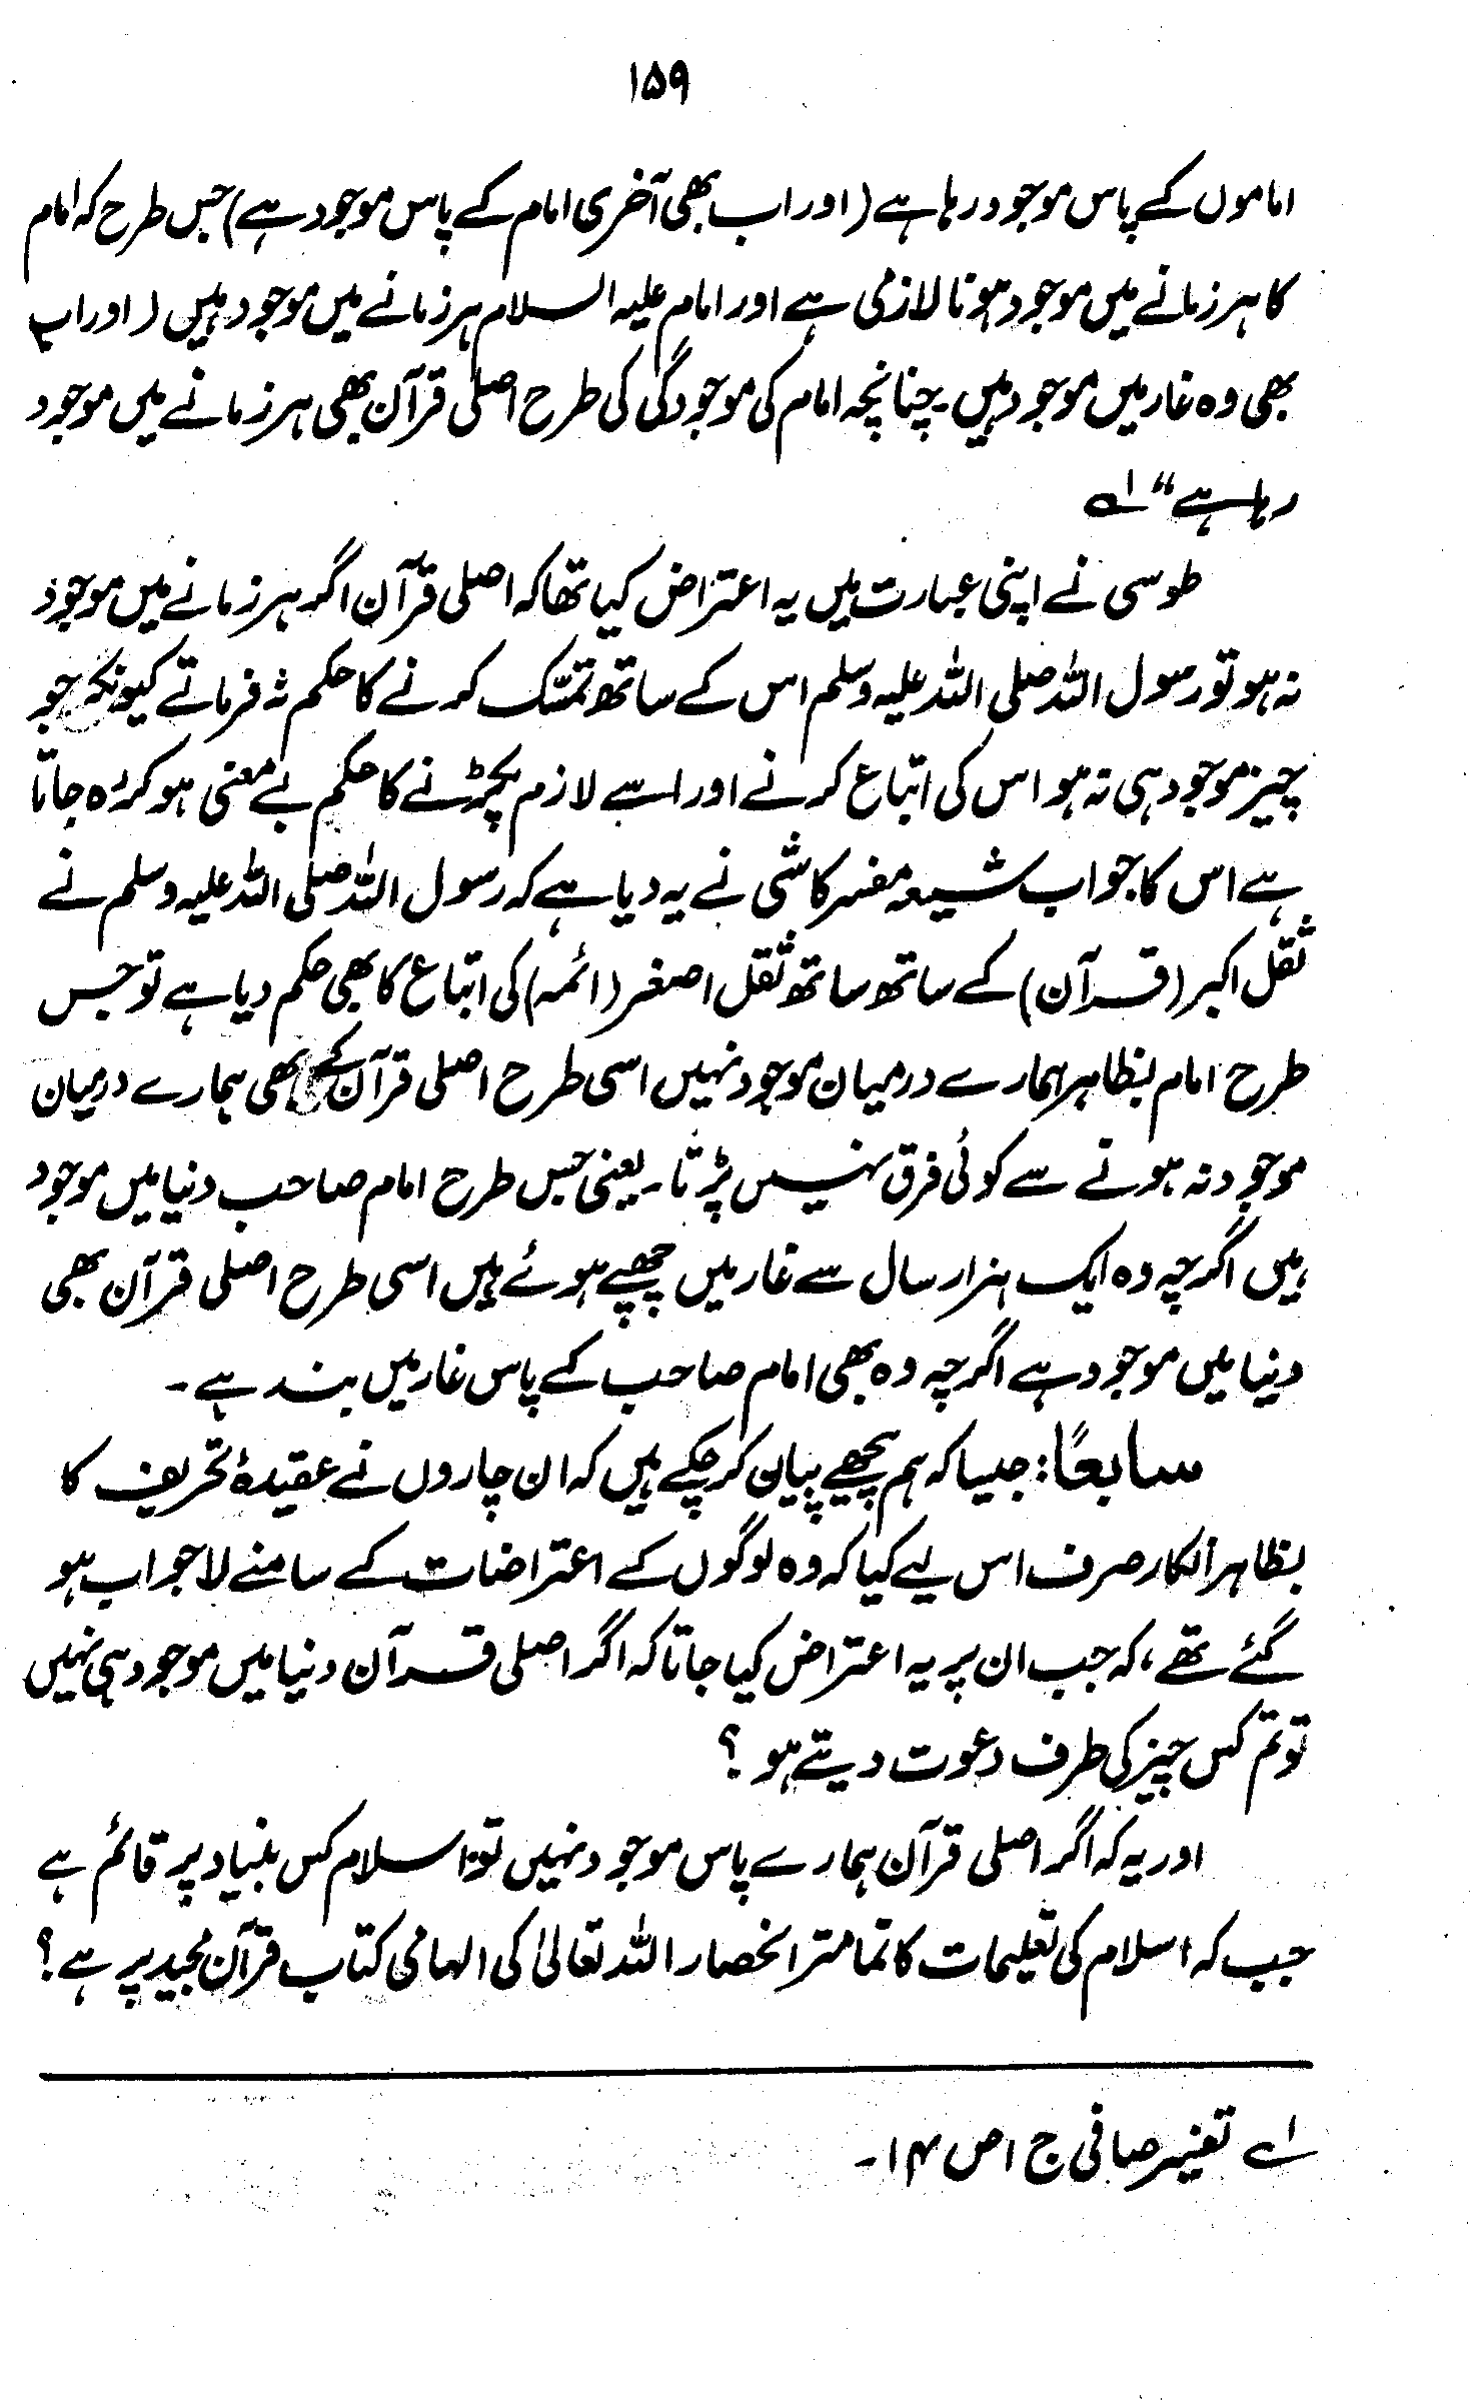 ۱۵۹
اماموں کے پاس موجود رہا ہے (اور اب بھی آخری امام کے پاس موجود ہے) جس طرح کہ امام
کا ہر زمانے میں موجود ہونا لازمی ہے اور امام علیہ السلام ہر زمانے میں موجود ہیں (اور اب
بھی وہ غار میں موجود ہیں۔ چنانچہ امام کی موجودگی کی طرح اصلی قرآن بھی ہر زمانے میں موجود
رہا ہے“ ۱ے
طوسی نے اپنی عبارت میں یہ اعتراض کیا تھا کہ اصلی قرآن اگر ہر زمانے میں موجود
نہ ہو تو رسول اللہ صلی اللہ علیہ وسلم اس کے ساتھ تمسّک کرنے کا حکم نہ فرماتے کیونکہ جو
چیز موجود ہی نہ ہو اس کی اتباع کرنے اور اسے لازم پکڑنے کا حکم بے معنی ہو کر رہ جاتا
ہے اس کا جواب شیعہ مفسر کاشی نے یہ دیا ہے کہ رسول اللہ صلی اللہ علیہ وسلم نے
ثقل اکبر (قرآن) کے ساتھ ساتھ ثقل اصغر (ائمہ) کی اتباع کا بھی حکم دیا ہے تو جس
طرح امام بظاہر ہمارے درمیان موجود نہیں اسی طرح اصلی قرآن کے بھی ہمارے درمیان
موجود نہ ہونے سے کوئی فرق نہیں پڑتا۔ یعنی جس طرح امام صاحب دنیا میں موجود
ہیں اگرچہ وہ ایک ہزار سال سے غار میں چھپے ہوئے ہیں اسی طرح اصلی قرآن بھی
دنیا میں موجود ہے اگرچہ وہ بھی امام صاحب کے پاس غار میں بند ہے۔
سابعًا: جیسا کہ ہم پیچھے بیان کر چکے ہیں کہ ان چاروں نے عقیدۂ تحریف کا
بظاہر انکار صرف اس لیے کیا کہ وہ لوگوں کے اعتراضات کے سامنے لاجواب ہو
گئے تھے، کہ جب ان پر یہ اعتراض کیا جاتا کہ اگر اصلی قرآن دنیا میں موجود ہی نہیں
تو تم کس چیز کی طرف دعوت دیتے ہو؟
اور یہ کہ اگر اصلی قرآن ہمارے پاس موجود نہیں تو اسلام کس بنیاد پر قائم ہے
جب کہ اسلام کی تعلیمات کا تمام تر انحصار اللہ تعالیٰ کی الہامی کتاب قرآن مجید پر ہے؟
۱ے تفسیر صافی ج ۱ ص ۱۴۔